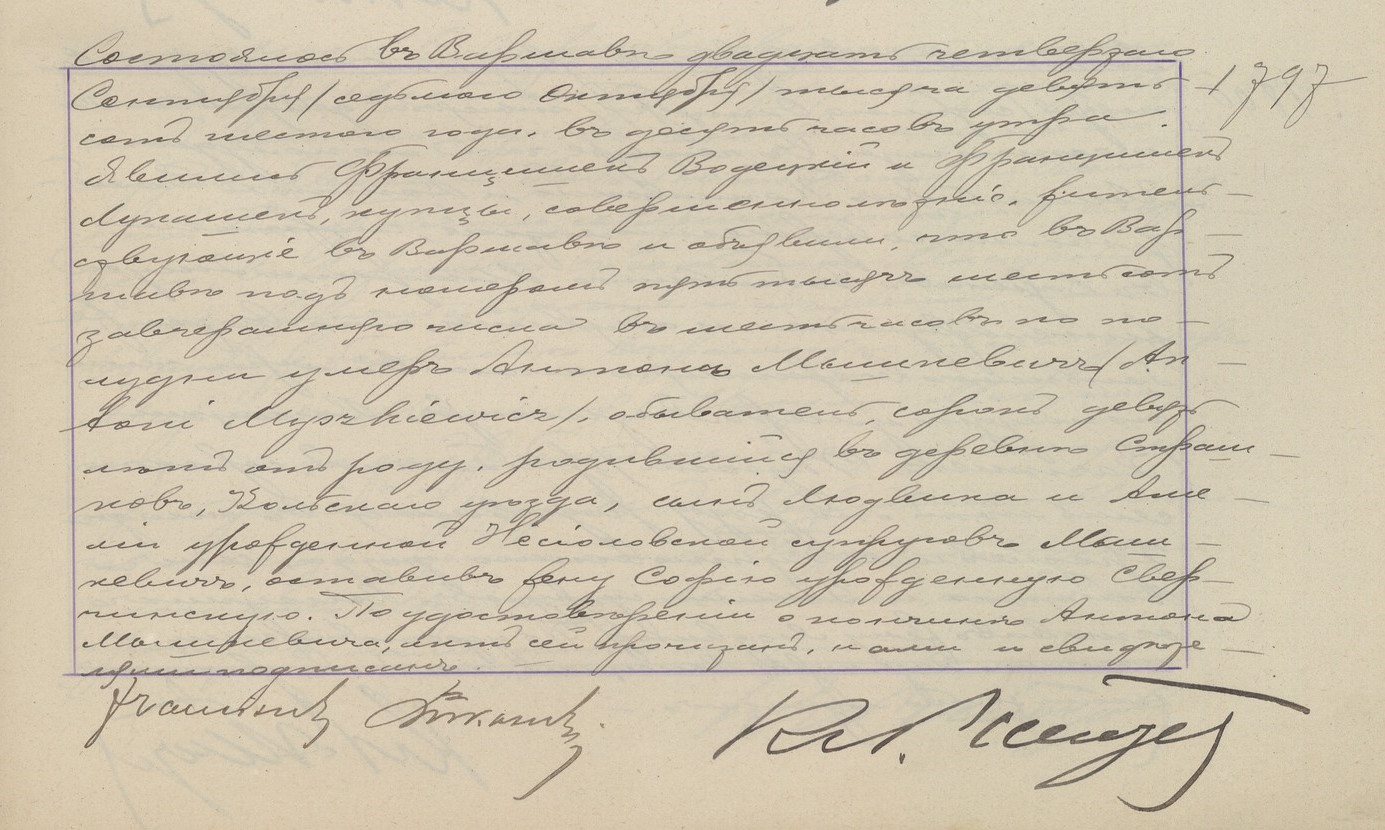 Состоялось въ Варшавѣ двадцать четвертаго
Сентября /седьмого Октября/ тысяча девять- 1797
сотъ шестого года, въ десять часовъ утра.
Явились Францишекъ Водецкій и Францишекъ
Лукашекъ, купцы, совершеннолѣтніе, житель-
ствующіе въ Варшавѣ и объявили, что въ Вар-
шавѣ подъ номеромъ пять тысячъ шестьсотъ
завчерашняго числа въ шесть часовъ по по-
лудни умеръ Антонъ Мышкевичъ /An-
toni Myszkiewicz/, обыватель, сорокъ девять
лѣтъ отъ роду, родившійся въ деревнѣ Страш-
ковъ, Кольскаго уѣзда, сынъ Людвика и Аме-
ліи урожденной Несіоловской супруговъ Мыш-
кевичъ, оставивъ жену Софію урожденную Свер-
чинскую. По удостовѣреніи о кончинѣ Антона
Мышкевича, актъ сей прочитанъ, нами и свидѣте-
лями подписанъ.
Franciszek